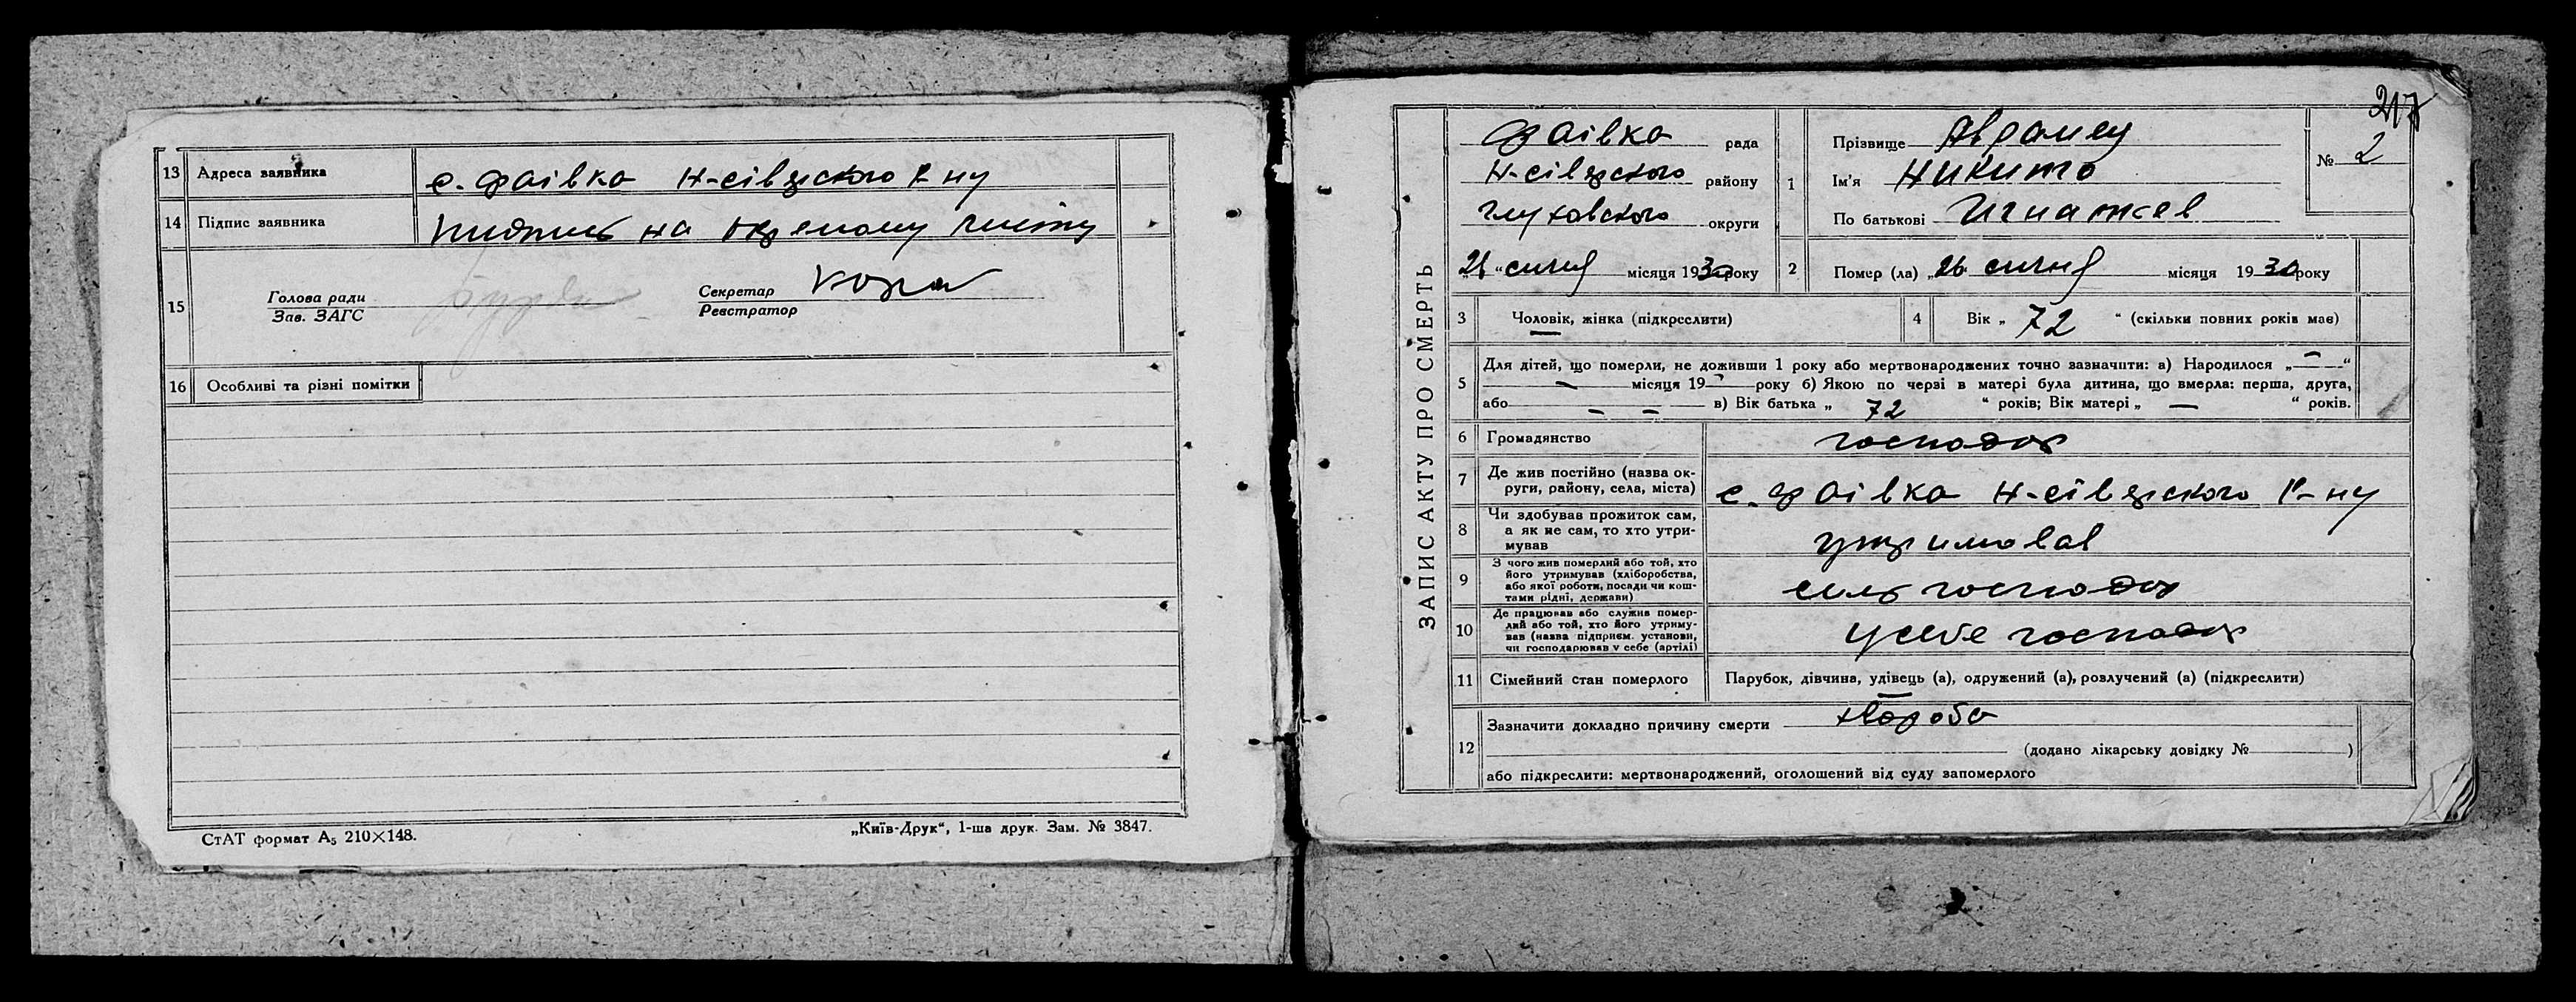 13 Адреса заявника с. Фаівка Н-сіверского Р-ну
14 Підпис заявника підпись на окремому листу
15 Голова ради
Зав. ЗАГС
Секретар
Реєстратор
16 Особливі та різні помітки
СтАТ формат А5 210×148.
„Київ-Друк“, 1-ша друк. Зам. № 3847.
217
ЗАПИС АКТУ ПРО СМЕРТЬ
Фаівка рада
Н-сіверского району
Глуховского округи
„26“ січня місяця 1930 року
1 Прізвище
Ім'я Никита
По батькові Игнатєв
№ 2
2 Помер (ла) „26 січня місяця 1930 року
3 Чоловік, жінка (підкреслити)
4 Вік „ 72 “ (скільки повних років має)
5 Для дітей, що померли, не доживши 1 року або мертвонароджених точно зазначити: а) Народилося „ — “
— місяця 19 — року б) Якою по черзі в матері була дитина, що вмерла: перша, друга,
або — — в) Вік батька „ 72 “ років; Вік матері „ — “ років.
6 Громадянство господар
7 Де жив постійно (назва ок-
руги, району, села, міста) с. Фаівка Н-сіверского Р-ну
8 Чи здобував прожиток сам,
а як не сам, то хто утри-
мував утримовав
9 З чого жив померлий або той, хто
його утримував (хліборобства,
або якої роботи, посади чи кош-
тами рідні, держави) сель господар
10 Де працював або служив помер-
лий або той, хто його утриму-
вав (назва підприєм. установи,
чи господарював у себе (артілі) у себе господар
11 Сімейний стан померлого Парубок, дівчина, удівець (а), одружений (а), розлучений (а) (підкреслити)
12 Зазначити докладно причину смерти хвороба
(додано лікарську довідку № )
або підкреслити: мертвонароджений, оголошений від суду запомерлого